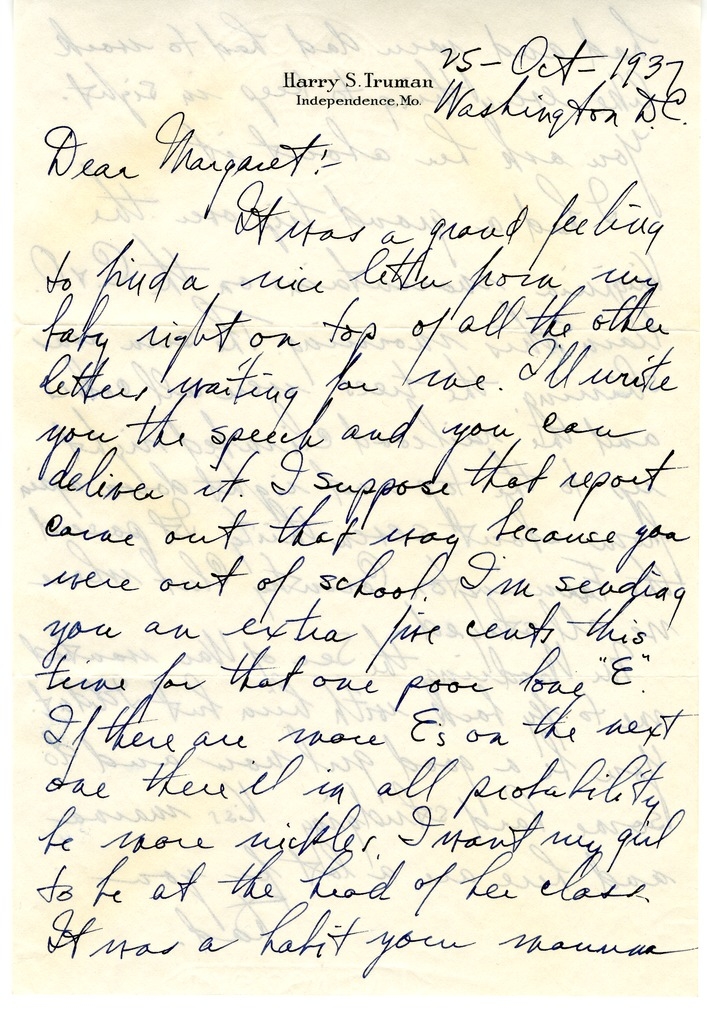 25 - Oct - 1937
Harry S. Truman
Independence, Mo.
Washington D.C.
Dear Margaret:-
It was a grand feeling
to find a nice letter from my
baby right on top of all the other
letters waiting for me. I'll write
you the speech and you can
deliver it. I suppose that report
came out that way because you
were out of school. I'm sending
you an extra five cents this
time for that one poor lone "E".
If there are more Es on the next
one there'll in all probability
be more nickles. I want my girl
to be at the head of her class.
It was a habit your mamma